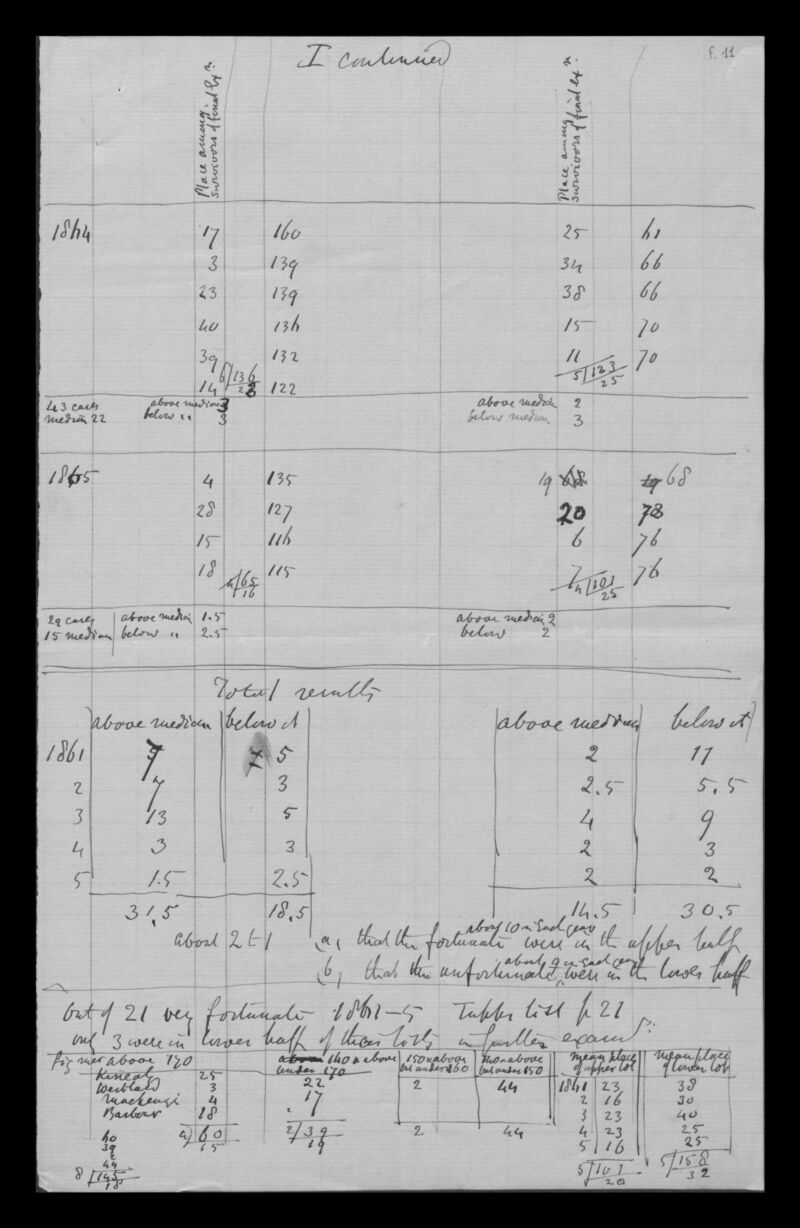 I continued
f. 11
Place among survivors of final Exn.
Place among survivors of final Exn.
1864 17 160 25 61
3 139 34 66
23 139 38 66
40 136 15 70
39 132 11 70
6/136 5/123
14 23 122 25
43 cases above median 3 above median 2
median 22 below " 3 below median 3
1865 4 135 19 68 19 68
28 127 20 73
15 116 6 76
18 115 7 76
4/65 4/101
16 25
29 cases above median 1.5 above median 2
15 median below " 2.5 below 2
Total results
above median below it above median below it
1861 7 5 2 11
2 7 3 2.5 5.5
3 13 5 4 9
4 3 3 2 3
5 1.5 2.5 2 2
31.5 18.5 14.5 30.5
about 10 in each year
about 2 to 1 (a, that the fortunate were in the upper half
about 9 in each year
(b, that the unfortunate, were in the lower half
Out of 21 very fortunate 1861-5 Tupper list p 21
only 3 were in lower half of their lists in further examn:
Fig mer above 170 above 140 or above 150 or above 140 or above mean place mean place
under 170 but under 160 but under 150 of upper lot of lower lot
Kineal 25 22 2 44 1861 23 38
Westland 3 17 2 16 30
Mackenzi 4 3 23 40
Barbour 18 4 23 25
4) 60 2/39 2 44 5 16 25
15 19
60
39
2
44
8/145 5/101 5/158
18 20 32